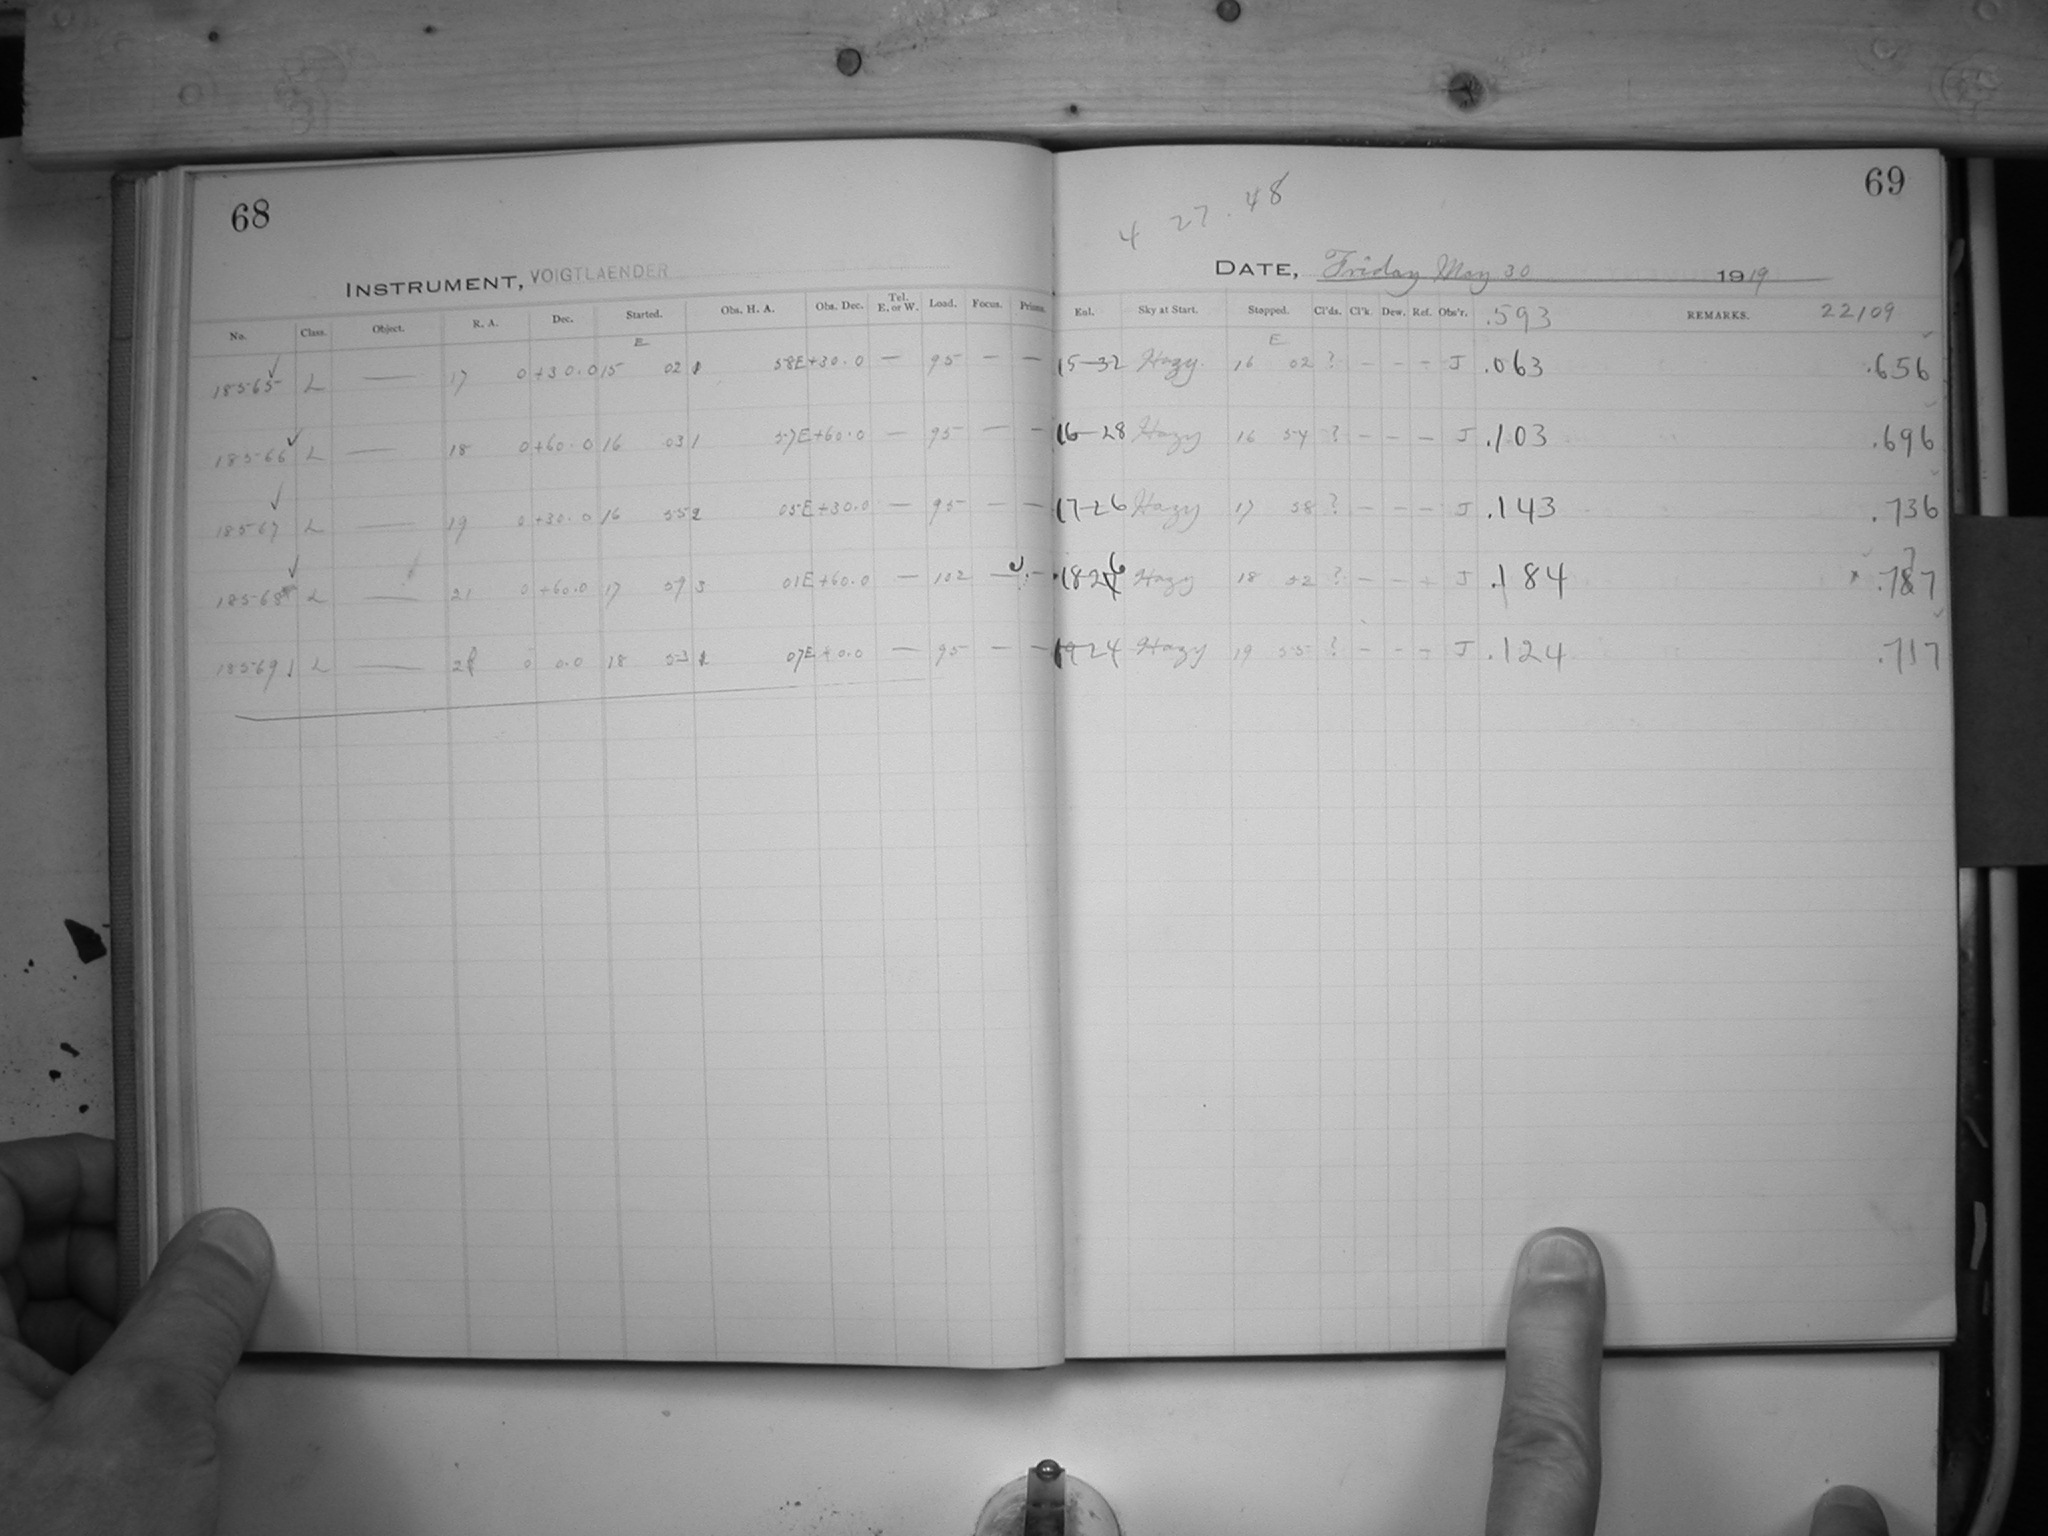 68
INSTRUMENT, VOIGTLAENDER
No. Class. Object. R. A. Dec. Started. Obs. H. A. Obs. Dec. Tel. E. or W. Load. Focus. Prisms.
E
18565 L — 17 0 +30.0 15 02 1 58E +30.0 — 95 — —
18566 L — 18 0 +60.0 16 03 1 57E +60.0 — 95 — —
18567 L — 19 0 +30.0 16 55 2 05E +30.0 — 95 — —
18568 L — 21 0 +60.0 17 59 3 01E +60.0 — 102 — —
18569 L — 21 0 0.0 18 53 2 07E +0.0 — 95 — —
69
4 27.48
DATE, Friday May 30 1919
Eol. Sky at Start. Stopped. Cl'ds. Cl'k. Dew. Ref. Obs'r. .593 REMARKS. 22109
E
15-32 Hazy 16 02 ? - - - J .063 .656
16-28 Hazy 16 54 ? - - - J .103 .696
17-26 Hazy 17 58 ? - - - J .143 .736
18-26 Hazy 18 52 ? - - - J .184 .787
19-24 Hazy 19 55 ? - - - J .124 .717